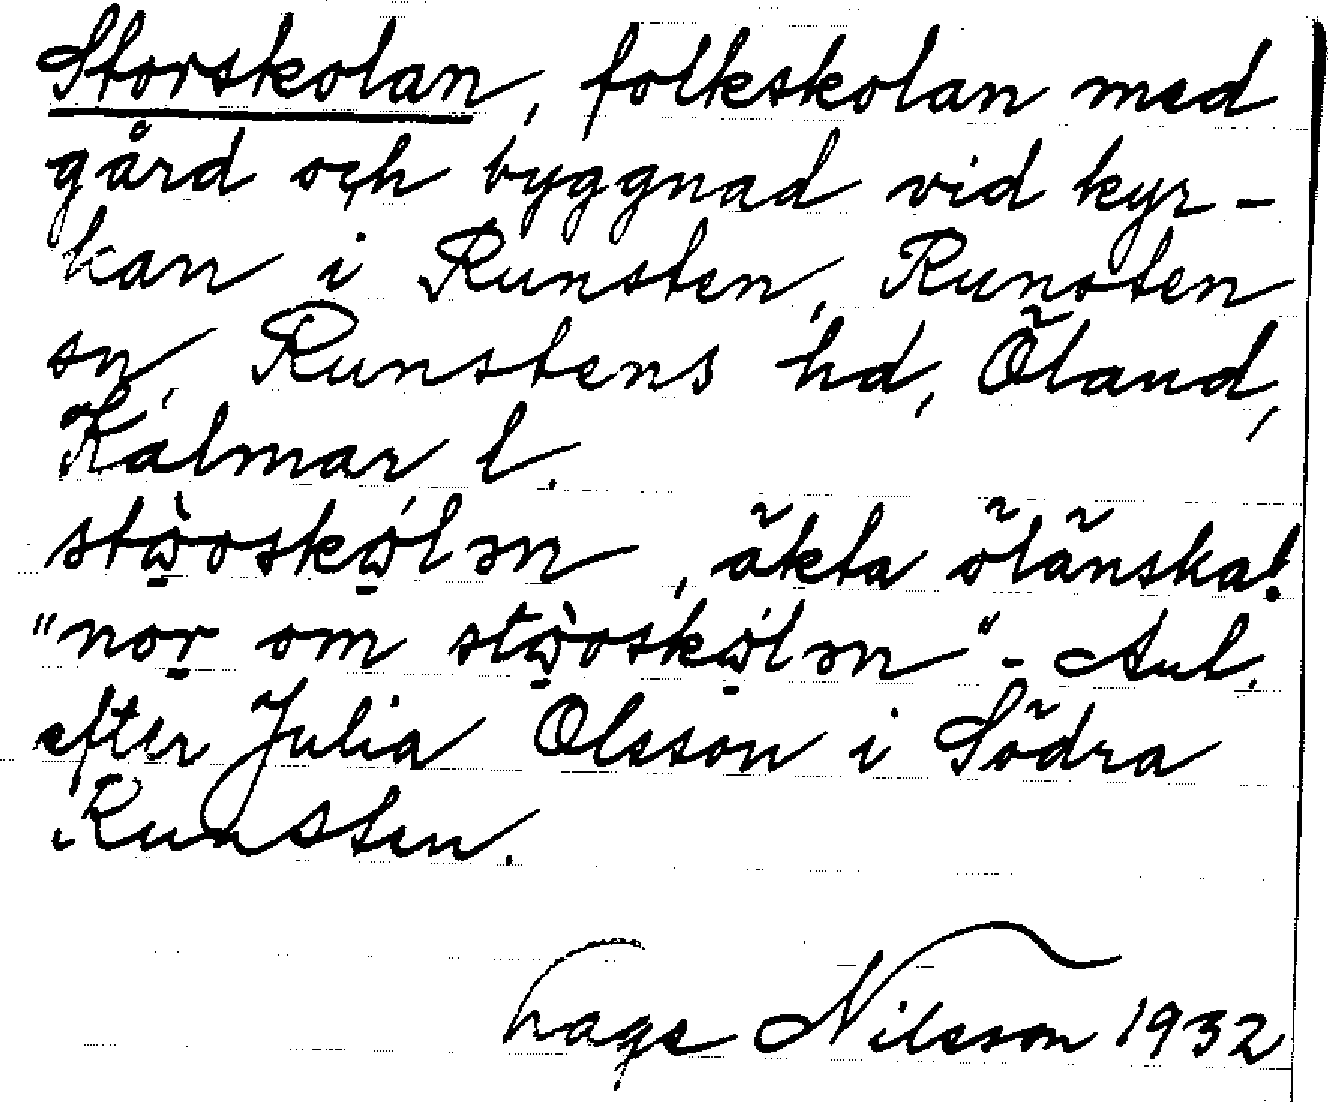 Storskolan, folkskolan med
gård och byggnad vid kyr-
kan i Runsten, Runsten
sn, Runstens hd, Öland,
Kalmar l.
, äkta öländska!
"nor om " - Aul.
efter Julia Olsson i Södra
Runsten.
Hage Nilsson 1932